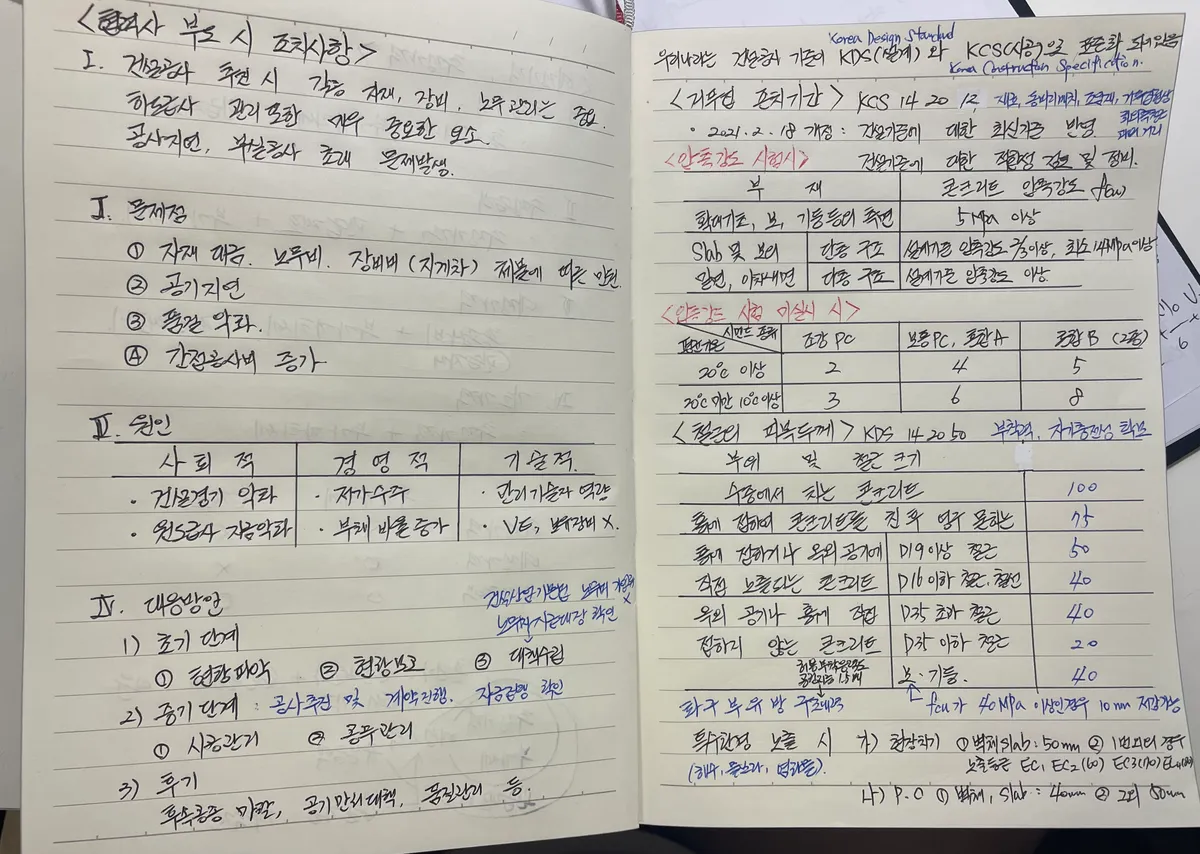 <협력사 부도 시 조치사항>
I. 건설공사 추진 시 각종 자재, 장비, 노무관리는 중요.
하도급사 관리 또한 매우 중요한 요소.
공사지연, 부실공사 초래 문제발생.
II. 문제점
① 자재 대금, 노무비, 장비비(지게차) 체불에 따른 민원
② 공기지연
③ 품질 악화.
④ 간접공사비 증가
III. 원인
사회적 경영적 기술적.
· 건설경기 악화 · 저가수주 · 관리기술자 역량
· 원도급사 자금악화 · 부채 비율 증가 · VE, 보유장비 X.
IV. 대응방안
건설산업기본법 노무비
노무자 지급대장 확인
1) 초기 단계
① 현황파악 ② 현황보고 ③ 대책수립
2) 중기 단계 : 공사추진 및 계약진행. 자금집행 확인
① 시공관리 ② 공무관리
3) 후기
후속공종 마찰, 공기만회대책, 품질관리 등.
Korea Design Standard
우리나라는 건설공사 기준이 KDS(설계)와 KCS(시공)으로 표준화 되어있음
Korea Construction Specification.
<거푸집 존치기간> KCS 14 20 12 재료, 동바리해체, 조립재,
· 2021. 2. 18 개정 : 건설기준에 대한 최신기준 반영
<압축강도 시험시> 건설기준에 대한 적합성 검토 및 정비.
부 재 콘크리트 압축강도 fcu)
확대기초, 보, 기둥 등의 측면 5MPa 이상
Slab 및 보의 단층 구조 설계기준 압축강도 2/3이상, 최소 14MPa이상
밑면, 아치내면 다층 구조 설계기준 압축강도 이상.
<압축강도 시험 미실시 시>
시멘트 종류
평균기온 조강 PC 보통PC, 포함A 포함 B (2종)
20℃ 이상 2 4 5
20℃ 미만 10℃이상 3 6 8
<철근의 피복두께> KDS 14 20 50 부착력, 자기충전성 확보
부위 및 철근 크기
수중에서 치는 콘크리트 100
흙에 접하여 콘크리트를 친 후 영구 묻히는 75
흙에 접하거나 옥외 공기에 D19이상 철근 50
직접 노출되는 콘크리트 D16이하 철근, 철선 40
옥외 공기나 흙에 직접 D35 초과 철근 40
접하지 않는 콘크리트 D35 이하 철근 20
보·기둥. 40
fcu가 40MPa 이상인경우 10mm 저감가능
특수환경 노출 시 가) 현장치기 ① 벽체, slab : 50mm ② 1번외의 경우
(해수, 물보라, 염화물). 노출등급 EC1, EC2(60) EC3(70)
나) P.C ① 벽체, Slab : 40mm ② 그외 50mm